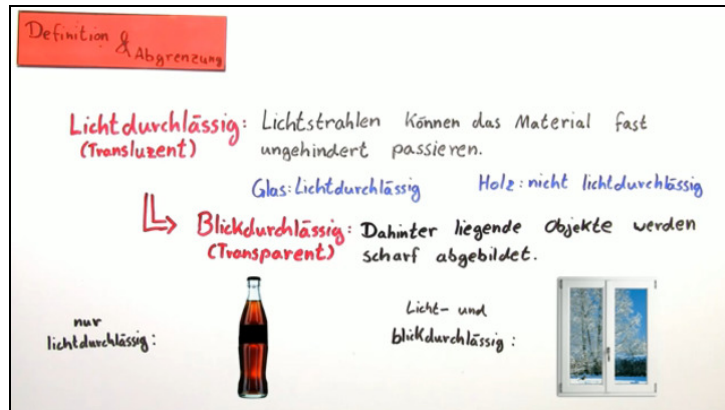 Definition &
Abgrenzung
Lichtdurchlässig: Lichtstrahlen können das Material fast
(Transluzent) ungehindert passieren.
Glas: Lichtdurchlässig Holz: nicht lichtdurchlässig
Blickdurchlässig: Dahinter liegende Objekte werden
(Transparent) scharf abgebildet.
nur
lichtdurchlässig:
Licht- und
blickdurchlässig: